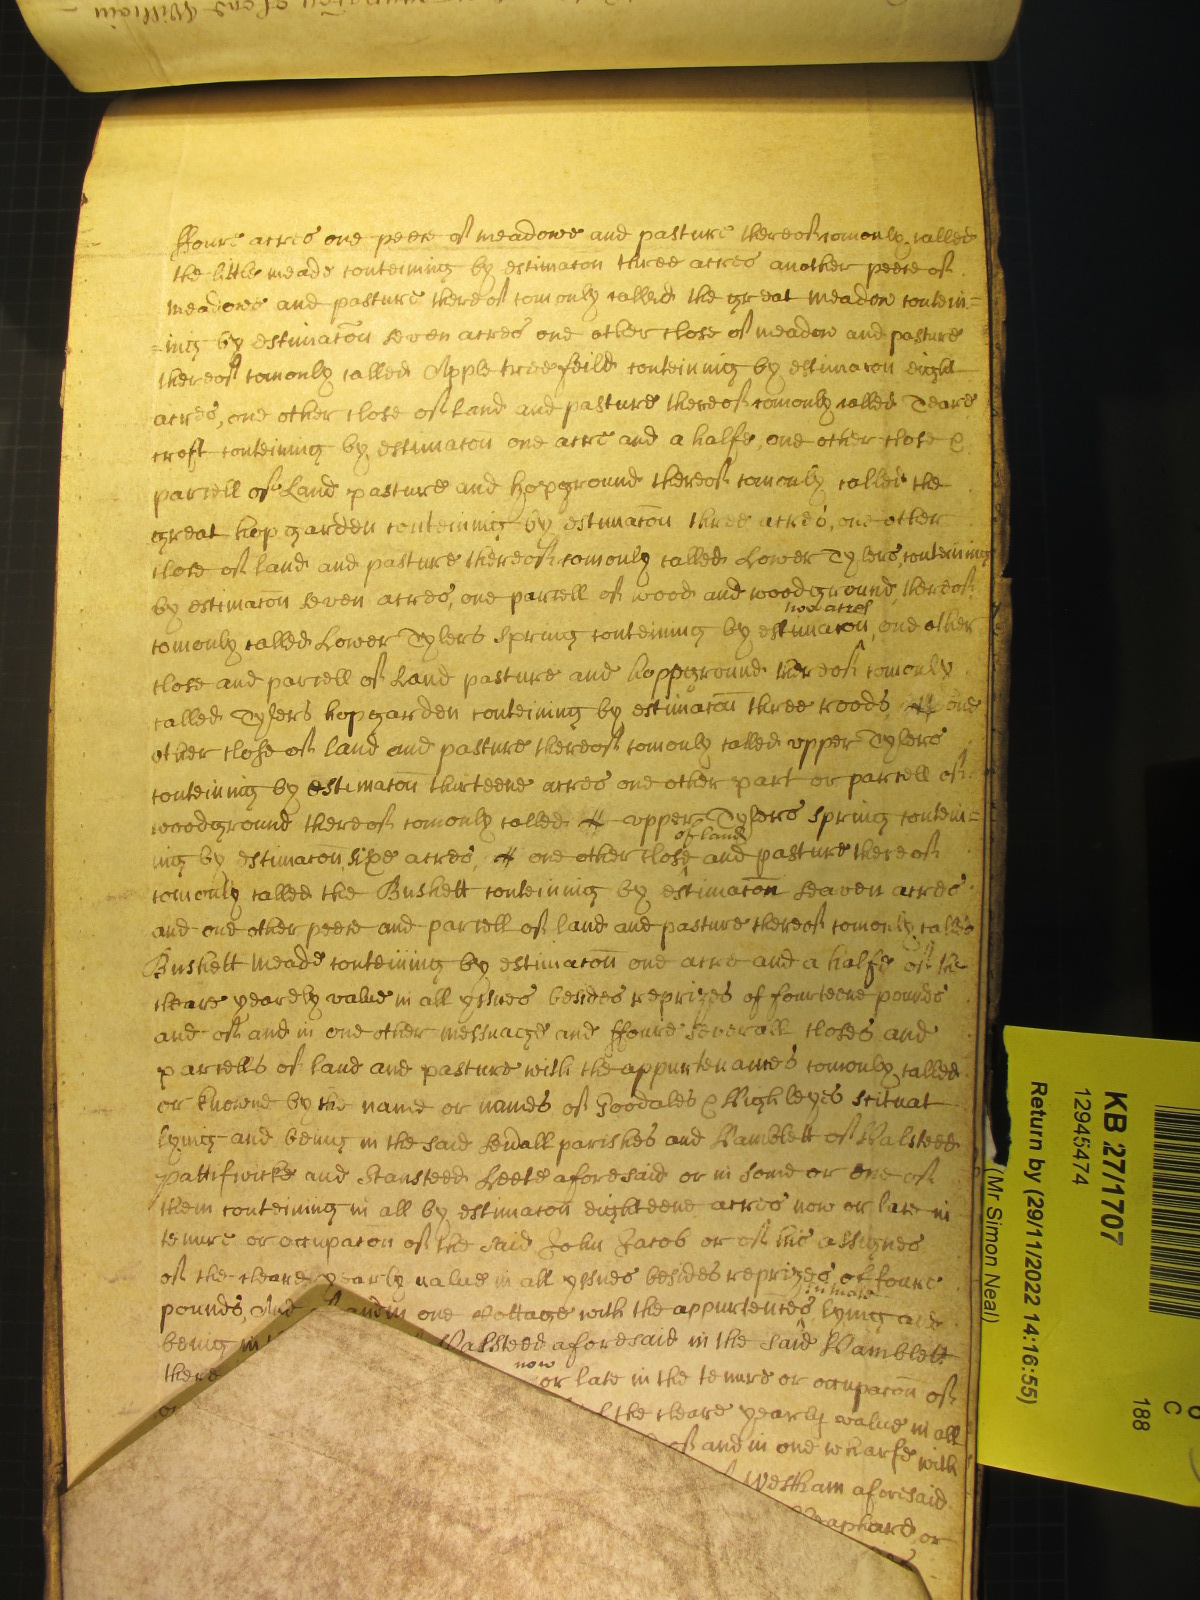 ffoure acres one peece of meadowe and pasture thereof comonly called
the little meade conteining by estimacon three acres another peece of
meadowe and pasture thereof comonly called the great meadow contein=
=ing by estimacon seven acres one other close of meadow and pasture
thereof comonly called Apple tree feild conteining by estimacon eight
acres, one other close of land and pasture thereof comonly called Teare
croft conteining by estimacon one acre and a halfe, one other close &
parcell of Land pasture and hopground thereof comonly called the
great hop garden conteining by estimacon three acres, one other
close of land and pasture thereof comonly called Lower Tylers, conteining
by estimacon seven acres, one parcell of wood and woodground, thereof
two acres
comonly called Lower Tylers spring conteining by estimacon, one other
close and parcell of Land pasture and hoppground thereof comonly
called Tylers hopgarden conteining by estimacon three roods, one
other close of land and pasture thereof comonly called upper Tylers
conteining by estimacon thirteene acres one other part or parcell of
woodground thereof comonly called upper Tylers spring contein=
of land
ing by estimacon sixe acres, one other close and pasture thereof
comonly called the Buskett conteining by estimacon seaven acres
and one other peece and parcell of land and pasture thereof comonly called
Buskett meade conteining by estimacon one acre and a halfe of the
cleare yearely value in all yssues besides reprizes of fourteene pounds
and of and in one other messuage and ffoure severall closes and
parcells of land and pasture with the appurtenances comonly called
or knowne by the name or names of Goodales & Highleyes scituat
lying and being in the said severall parishes and Hamblett of Halsteed
Pattiswicke and Stansteed Leete aforesaid or in some or one of
them conteining in all by estimacon eighteene acres now or late in
tenure or occupacon of the said John Jacob or of his assignes
of the cleare yearly value in all yssues besides reprizes of foure
scituate
pounds, And of and in one Cottage with the appurtences lying and
being in Halsteed aforesaid in the said Hamblett
now
there or late in the tenure or occupacon of
the cleare yearly value in all
of and in one wharfe with
Westham aforesaid
or
KB 27/1707
12945474
Return by (29/11/2022 14:16:55)
(Mr Simon Neal)
C
188